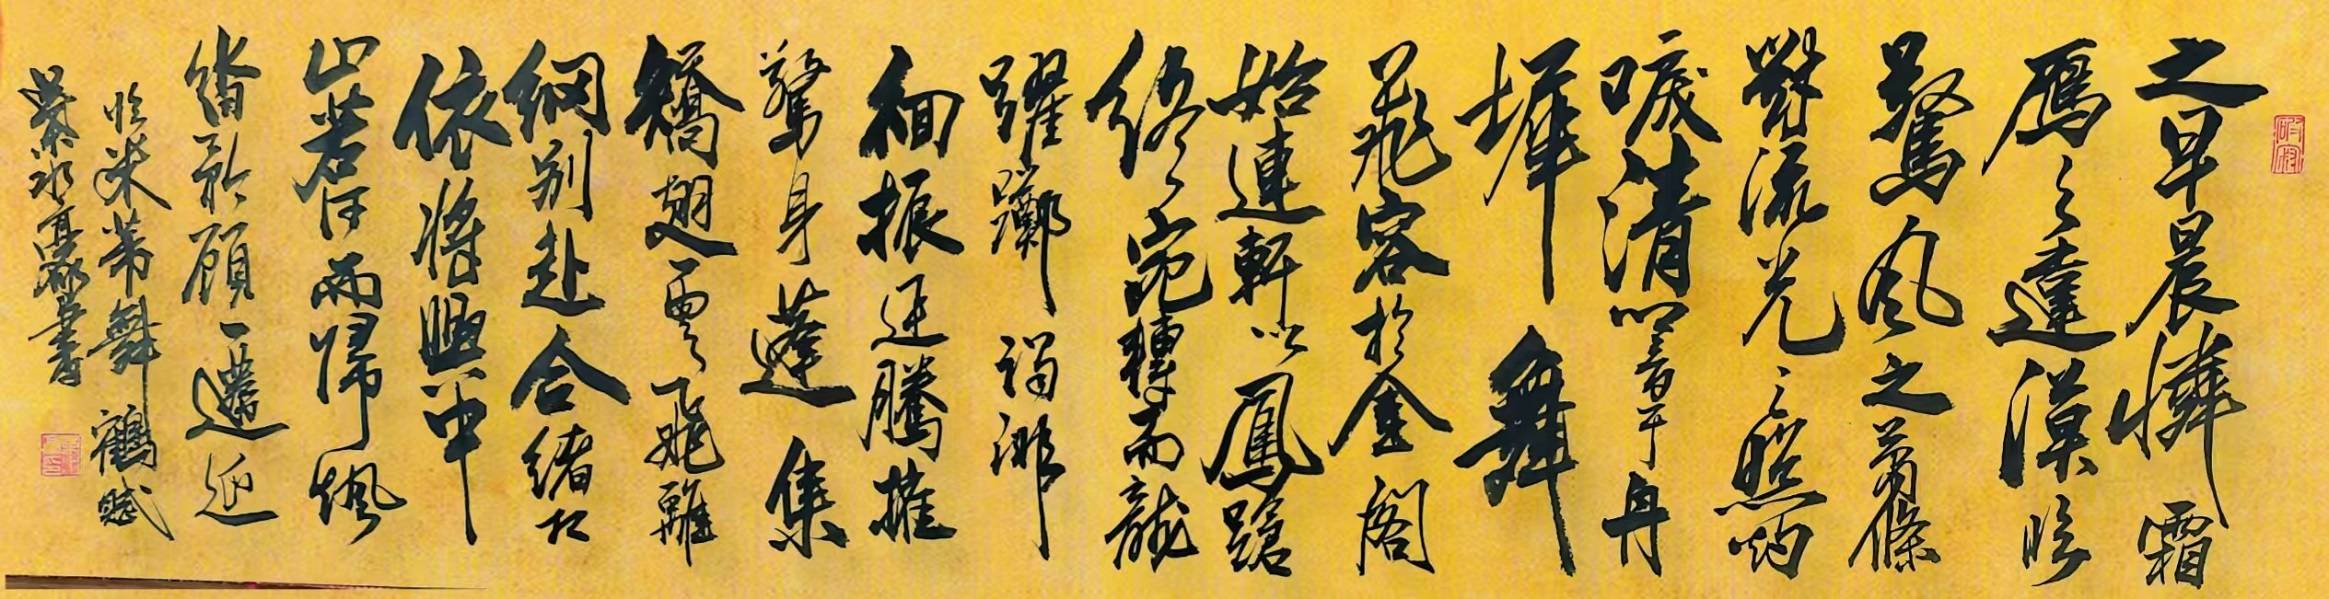 之早晨憐霜
鴈之違漠臨
驚風之蕭條
對流光之照灼
唳清響於丹
墀舞
飛容於金閣
始連軒以鳳蹌
終宛轉而龍
躍躑躅徘
徊振迅騰摧
驚身蓬集
矯翅雪飛離
綱別赴合緒相
依將興中
止若往而歸颯
沓矜顧遷延
臨米芾舞鶴賦
水書